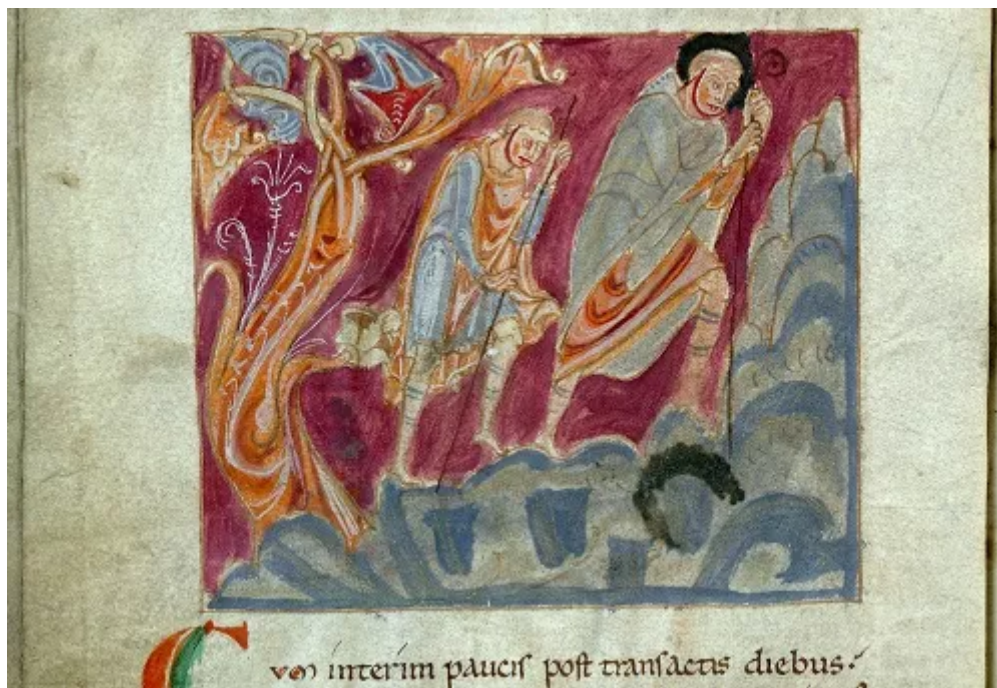 Cvm interim paucis post transactis diebus.